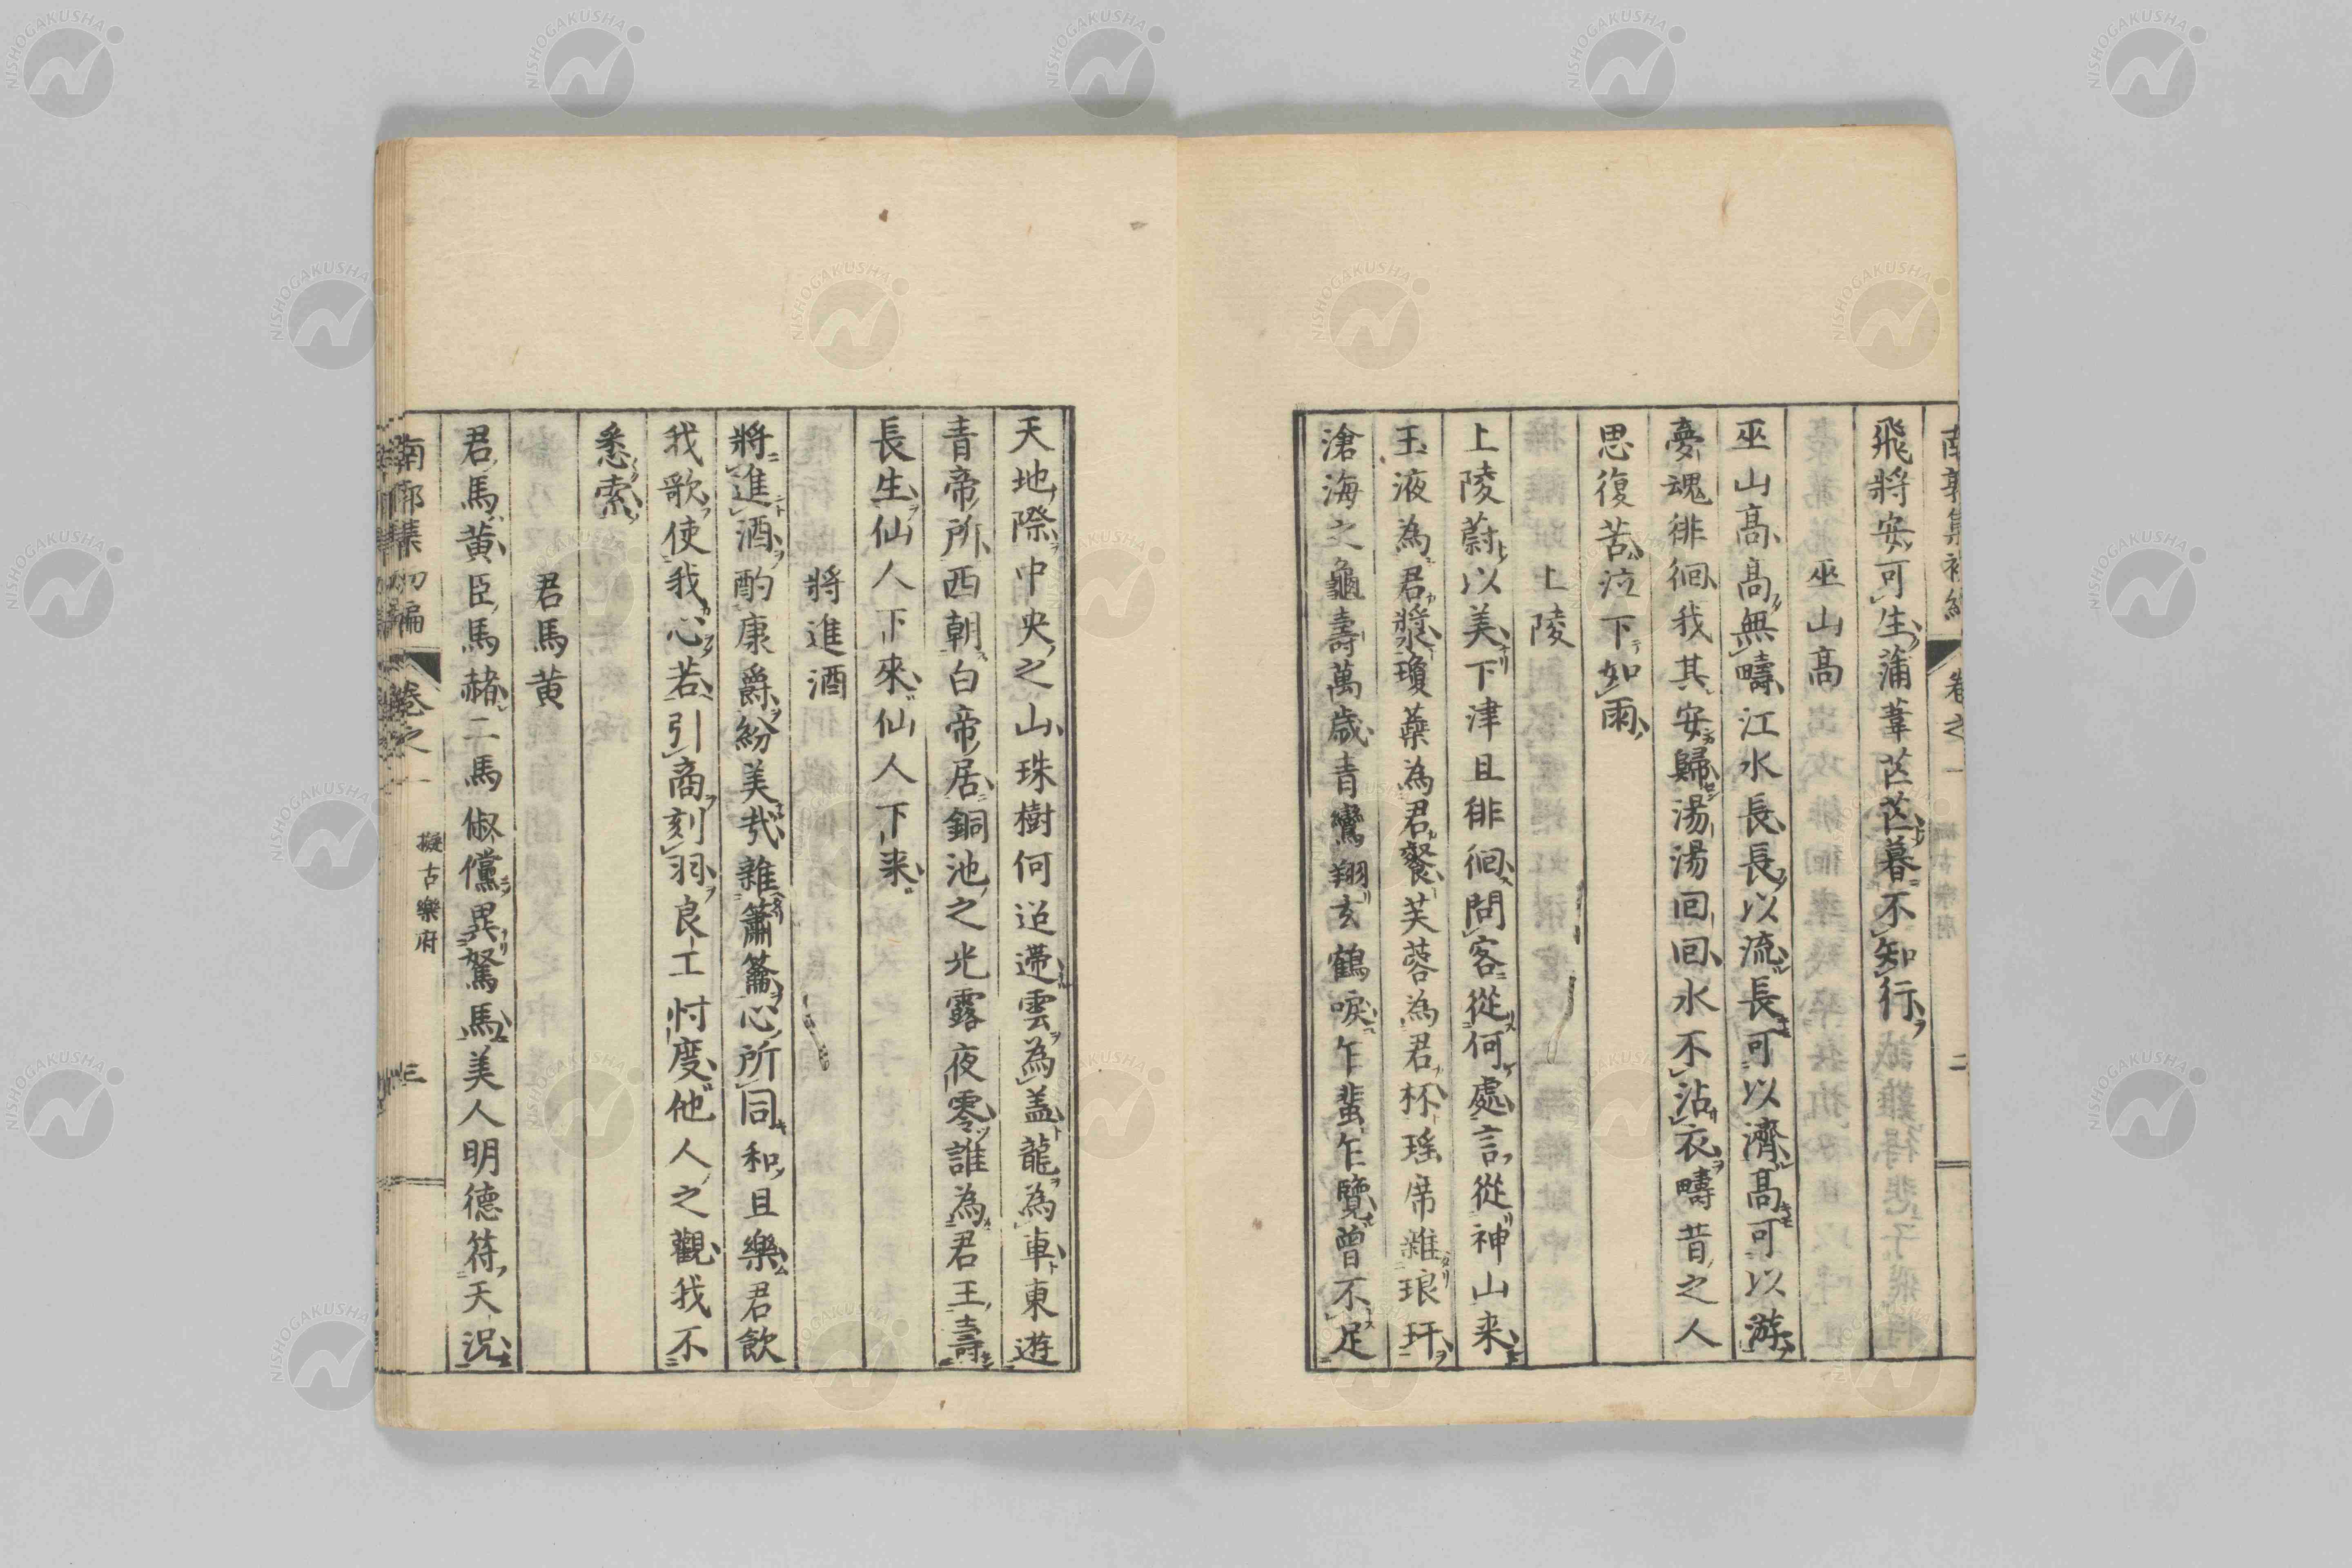 飛將安可生蒲葦茫茫暮不知行
巫山高
巫山高高無疇江水長長以流長可以濟高可以游
夢魂徘徊我其安歸湯湯回回水不沾衣疇昔之人
思復苦泣下如雨
上陵
上陵蔚以美下津且徘徊問客從何處言從神山来
玉液為君漿瓊藥為君餐芙蓉為君杯瑶席雜琅玕
滄海之龜壽萬歳青鸞翔玄鶴唳乍蜚乍覽曽不足
天地際中央之山珠樹何迢遰雲為盖龍為車東遊
青帝所西朝白帝居銅池之光露夜零誰為君王壽
長生仙人下來仙人下来
將進酒
將進酒酌康爵紛美哉雜簫籥心所同和且樂君飲
我歌使我心若引商刻羽良工忖度他人之觀我不
悉索
君馬黄
君馬黄臣馬赭二馬俶儻異駑馬美人明德符天况
南郭集初編
卷之一
擬古樂府
三
NISHOGAKUSHA